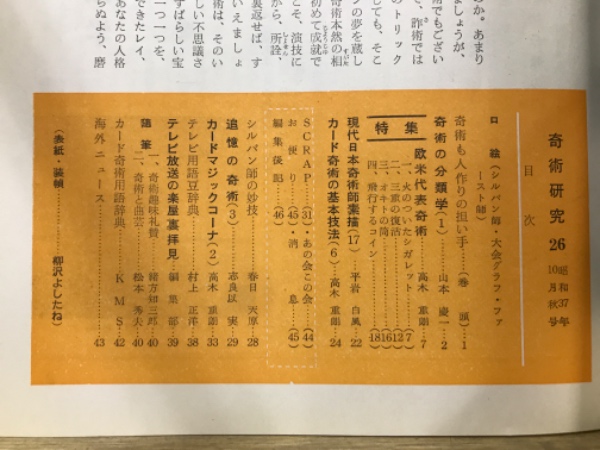 か。あまり
ましょうが、
術でもござい
て、詐術では
のトリック
しても、そこ
ンの夢を蔵し
奇術本然の相
初めて成就で
こそ、演技に
から、所詮、
裏返せば、す
いえましょ
術は、そのい
しい不思議さ
すばらしい宝
一つ一つを、
できたレイ、
あなたの人格
らぬよう、磨
奇術研究 26 昭和37年 10月秋号
目次
口絵(シルバン師・大会グラフ・ファースト師)
奇術も人作りの担い手……(巻頭)…1
奇術の分類学(1)……山本慶一…2
特集 欧米代表奇術……高木重朗…7
一、火のついたシガレット……(7)
二、三重の復活……(12)
三、オキトの筒……(16)
四、飛行するコイン……(18)
現代日本奇術師素描(17)……平岩白風…22
カード奇術の基本技法(6)……高木重朗…24
SCRAP……(31)・あの会この会……(44)
お便り……(45)・消息……(45)
編集後記……(46)
シルバン師の妙技……春日天原…28
追憶の奇術(3)……志良以実…29
カードマジックコーナ(2)……高木重朗…33
テレビ用語豆辞典……村上正洋…38
テレビ放送の楽屋裏拝見……編集部…39
随筆 一、奇術趣味礼賛……緒方知三郎…40
二、奇術と曲芸……松本秀夫…40
カード奇術用語辞典……KMS…42
海外ニュース……43
(表紙・装幀……柳沢よしたね)